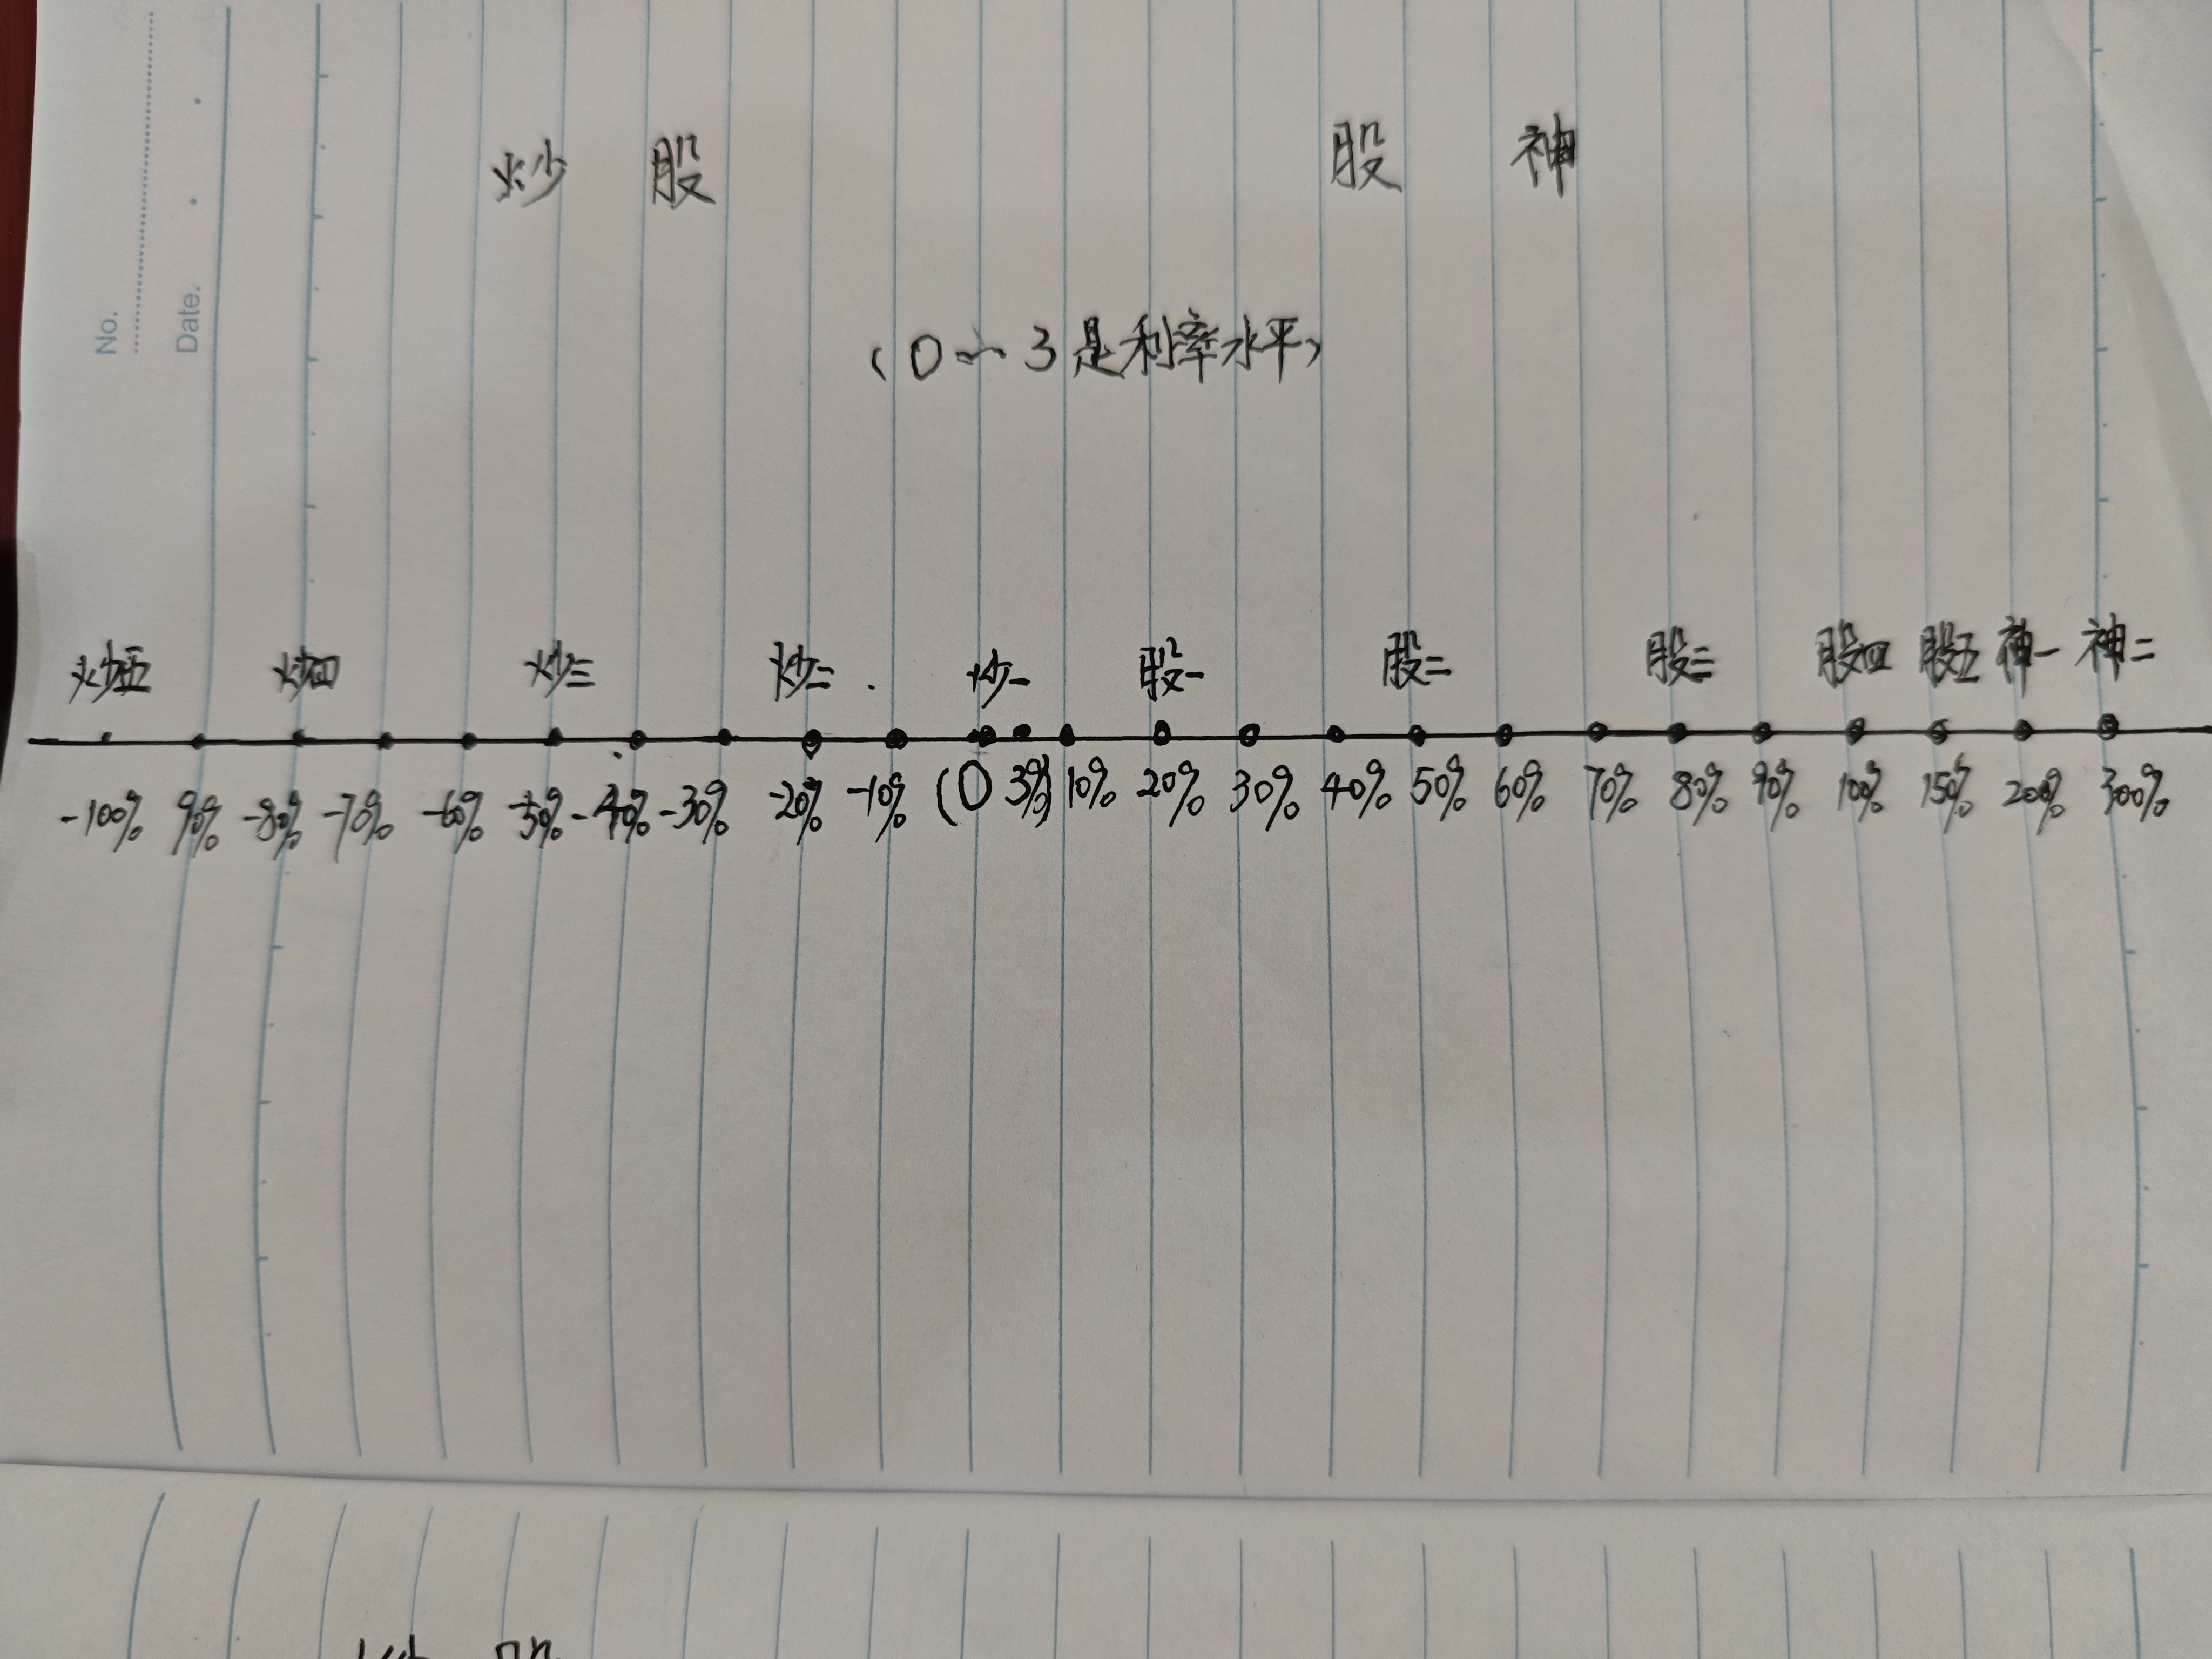 No.
Date.
炒 股 股 神
(0~3是利率水平)
炒五 炒四 炒三 炒二 炒一 股一 股二 股三 股四 股五 神一 神二
-100% 90% -80% -70% -60% -50% -40% -30% -20% -10% (0 3%) 10% 20% 30% 40% 50% 60% 70% 80% 90% 100% 150% 200% 300%